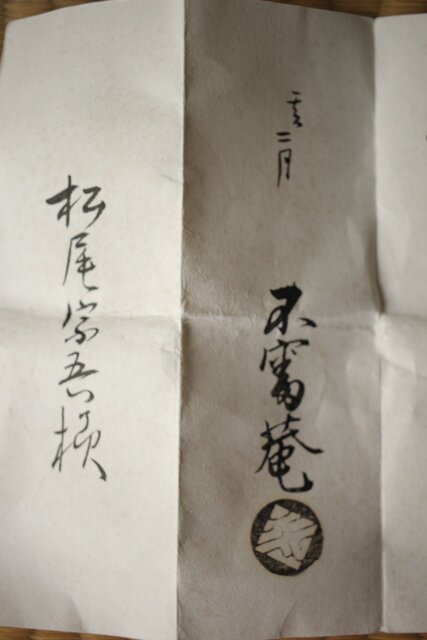 亥二月
不審菴
松尾宗吾様